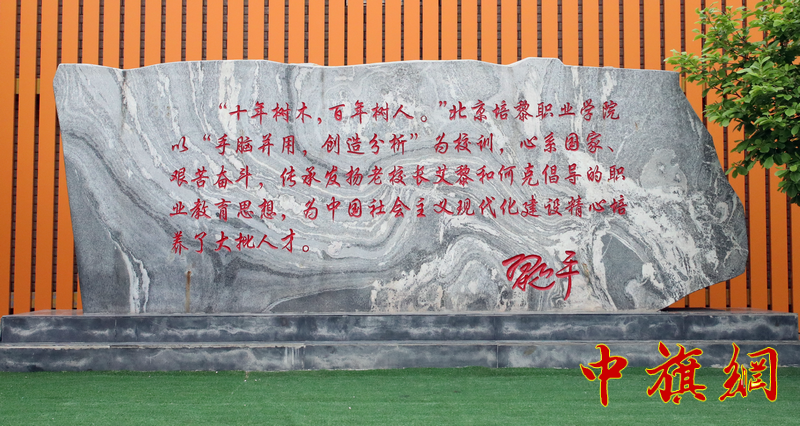 “十年树木，百年树人。”北京培黎职业学院
以“手脑并用，创造分析”为校训，心系国家、
艰苦奋斗，传承发扬老校长艾黎和何克倡导的职
业教育思想，为中国社会主义现代化建设精心培
养了大批人才。
中旗網